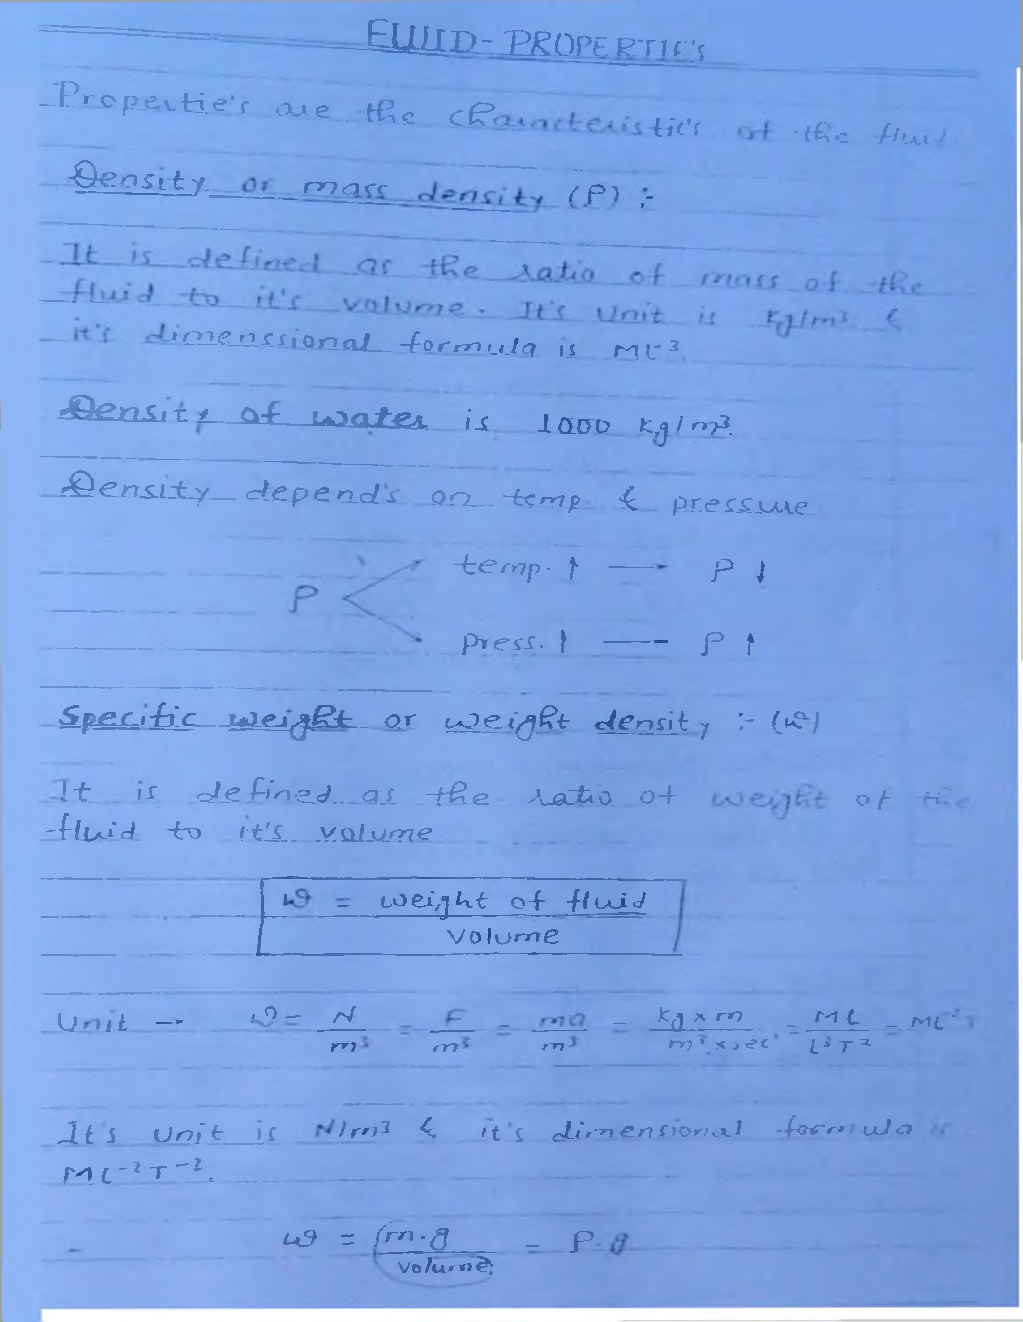 FLUID - PROPERTIE'S
Propertie's are the characteristic's of the fluid.
Density or mass density (ρ) :-
It is defined as the ratio of mass of the
fluid to it's volume. It's unit is Kg/m³ &
it's dimenssional formula is ML⁻³.
Density of water is 1000 Kg/m³.
Density depend's on temp. & pressure
ρ
temp. ↑ → ρ ↓
press. ↑ -- ρ ↑
Specific weight or weight density :- (ω)
It is defined as the ratio of weight of the
fluid to it's volume
ω = weight of fluid
volume
Unit → ω = N/m³ = F/m³ = ma/m³ = Kg x m/m³ x sec² = ML/L³T² = ML⁻²
It's unit is N/m³ & it's dimensional formula is
ML⁻²T⁻².
ω = m.g/volume = ρ.g